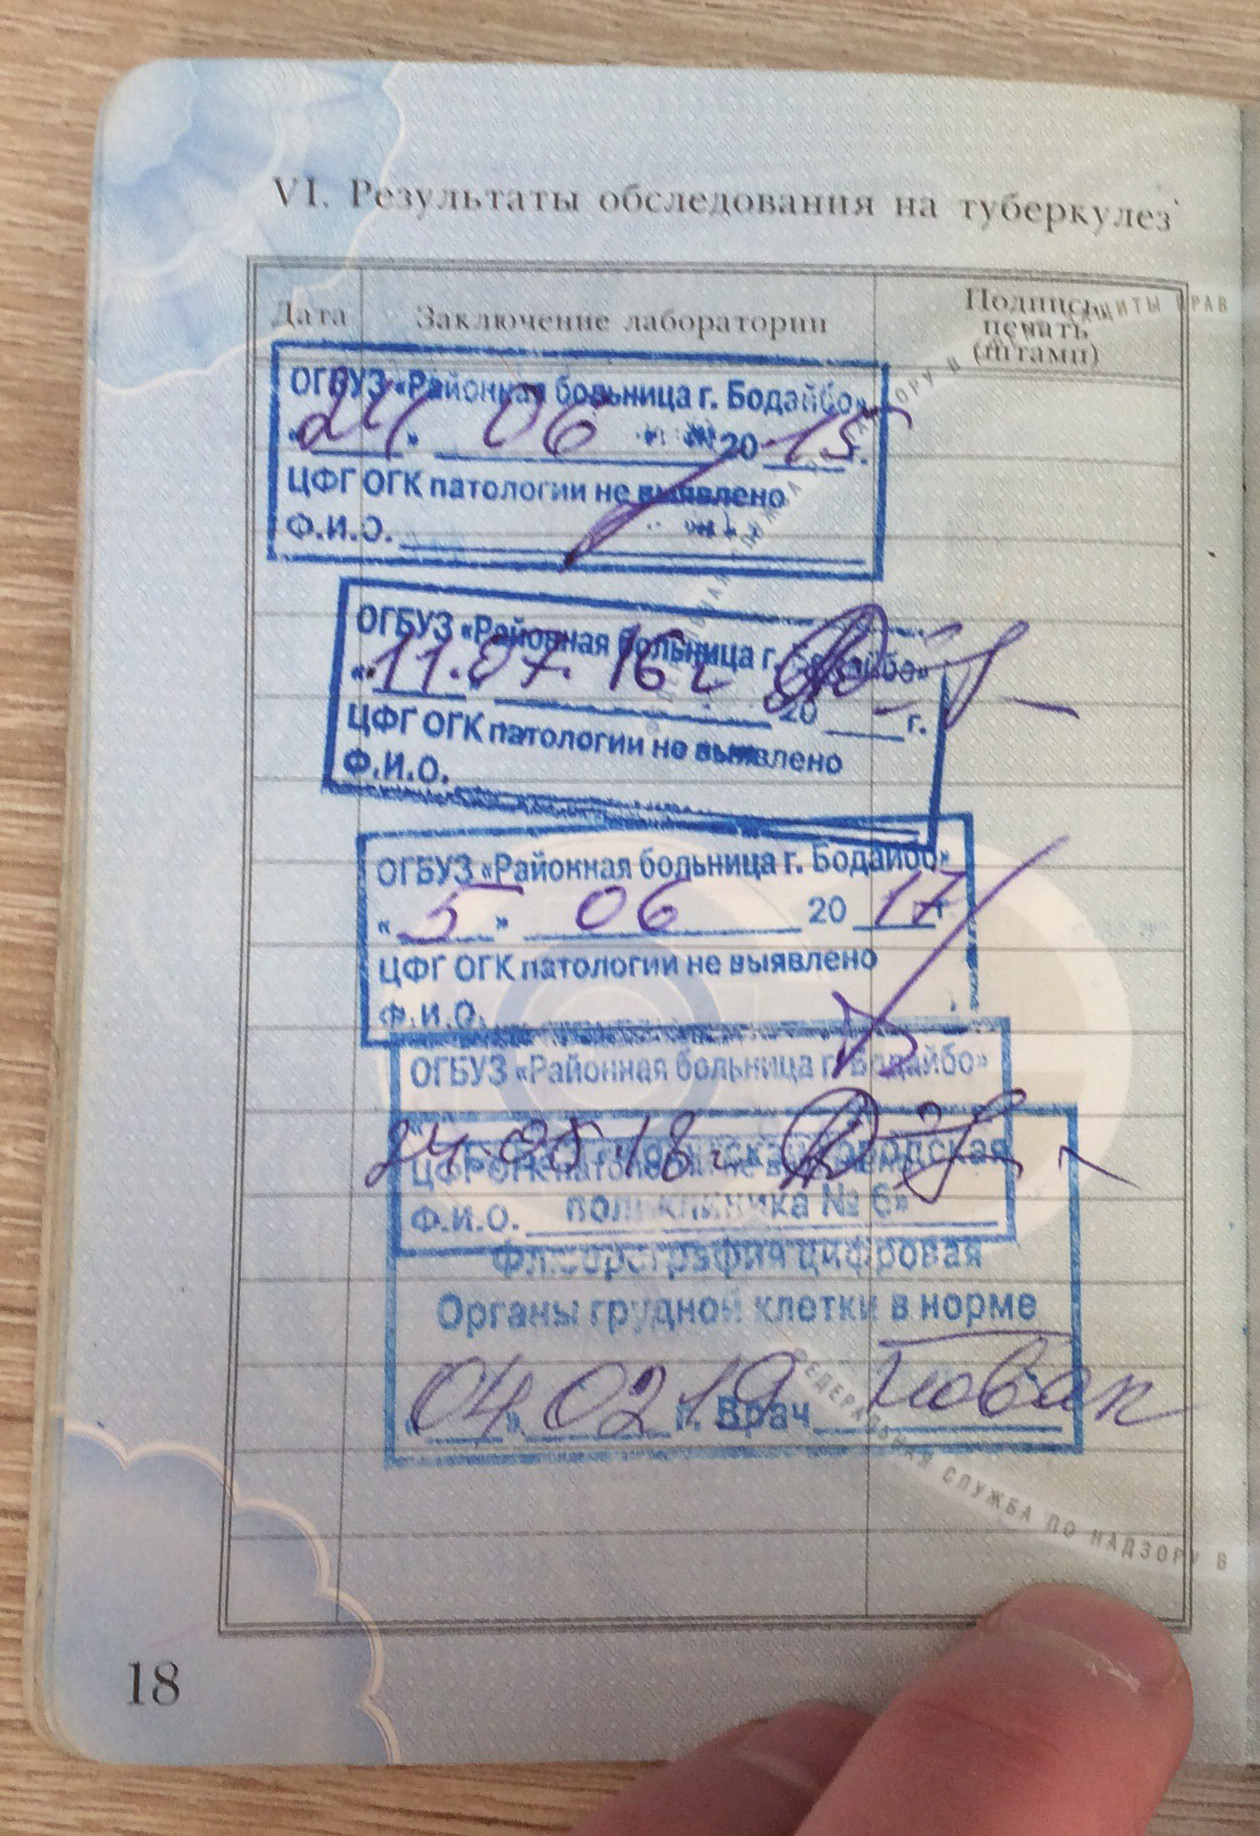 VI. Результаты обследования на туберкулез
Дата
Заключение лаборатории
Подпись,
печать
(штамп)
ОГБУЗ «Районная больница г. Бодайбо»
«24» 06 2015 г.
ЦФГ ОГК патологии не выявлено
Ф.И.О.
ОГБУЗ «Районная больница г. Бодайбо»
«11.07.16 г 20 г.
ЦФГ ОГК патологии не выявлено
Ф.И.О.
ОГБУЗ «Районная больница г. Бодайбо»
«5» 06 2017 г
ЦФГ ОГК патологии не выявлено
Ф.И.О.
ОГБУЗ «Районная больница г. Бодайбо»
24.05.18 г
городская
Ф.И.О.
поликлиника № 6»
Флюорография цифровая
Органы грудной клетки в норме
«04» 02 19 г. Врач
ФЕДЕРАЛЬНАЯ СЛУЖБА ПО НАДЗОРУ В
18